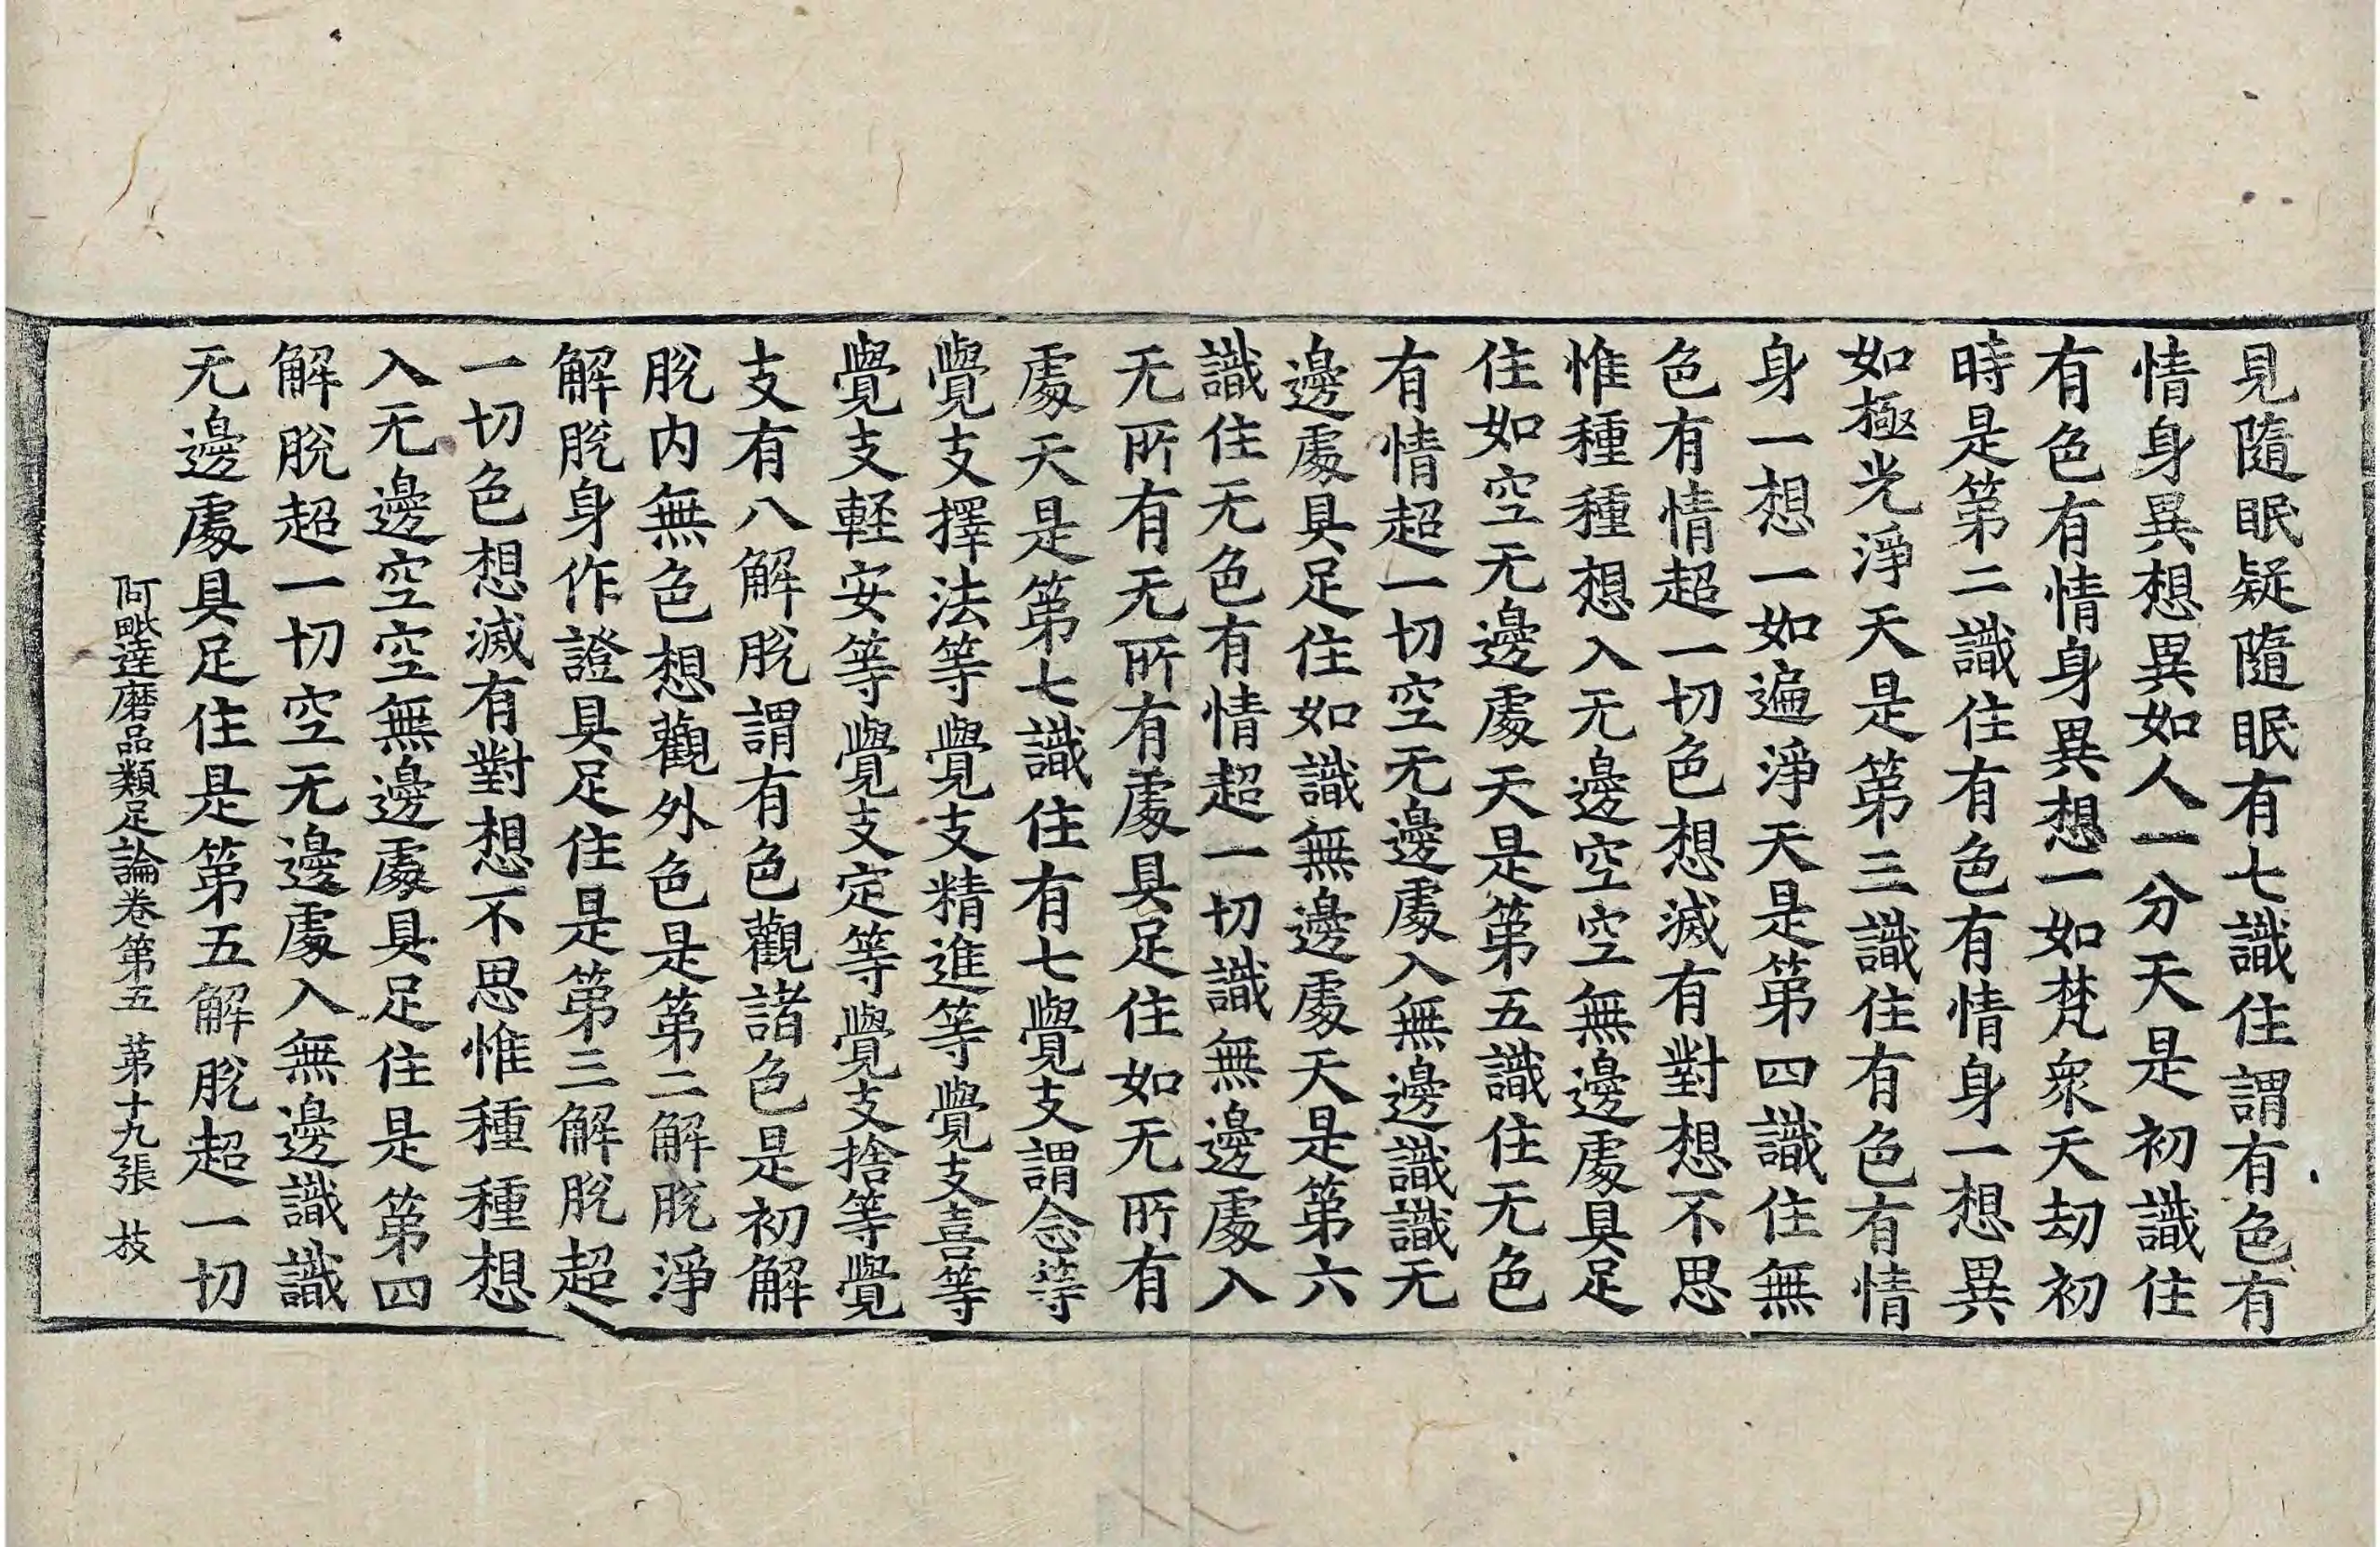 見隨眠疑隨眠有七識住謂有色有
情身異想異如人一分天是初識住
有色有情身異想一如梵衆天劫初
時是第二識住有色有情身一想異
如極光淨天是第三識住有色有情
身一想一如遍淨天是第四識住無
色有情超一切色想滅有對想不思
惟種種想入无邊空空無邊處具足
住如空无邊處天是第五識住无色
有情超一切空无邊處入無邊識識无
邊處具足住如識無邊處天是第六
識住无色有情超一切識無邊處入
无所有无所有處具足住如无所有
處天是第七識住有七覺支謂念等
覺支擇法等覺支精進等覺支喜等
覺支軽安等覺支定等覺支捨等覺
支有八解脫謂有色觀諸色是初解
脫内無色想觀外色是第二解脫淨
解脫身作證具足住是第三解脫超
一切色想滅有對想不思惟種種想
入无邊空空無邊處具足住是第四
解脫超一切空无邊處入無邊識識
无邊處具足住是第五解脫超一切
阿毗達磨品類足論卷第五 第十九張 枝